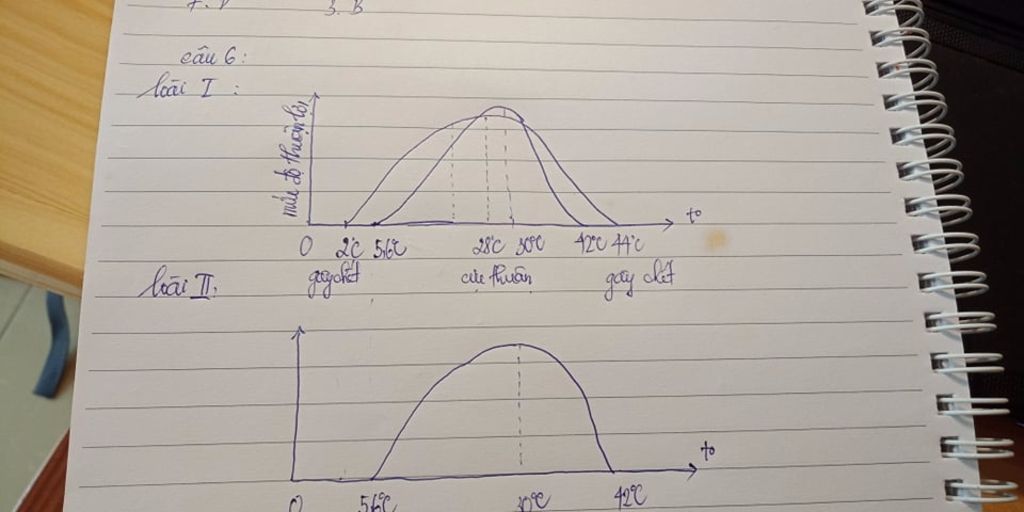 3. B
câu 6:
loài I :
mức độ thuận lợi
t°
0 2°C 5,6°C 28°C 30°C 42°C 44°C
gây chết cực thuận gây chết
loài II:
t°
0 5,6°C 30°C 42°C